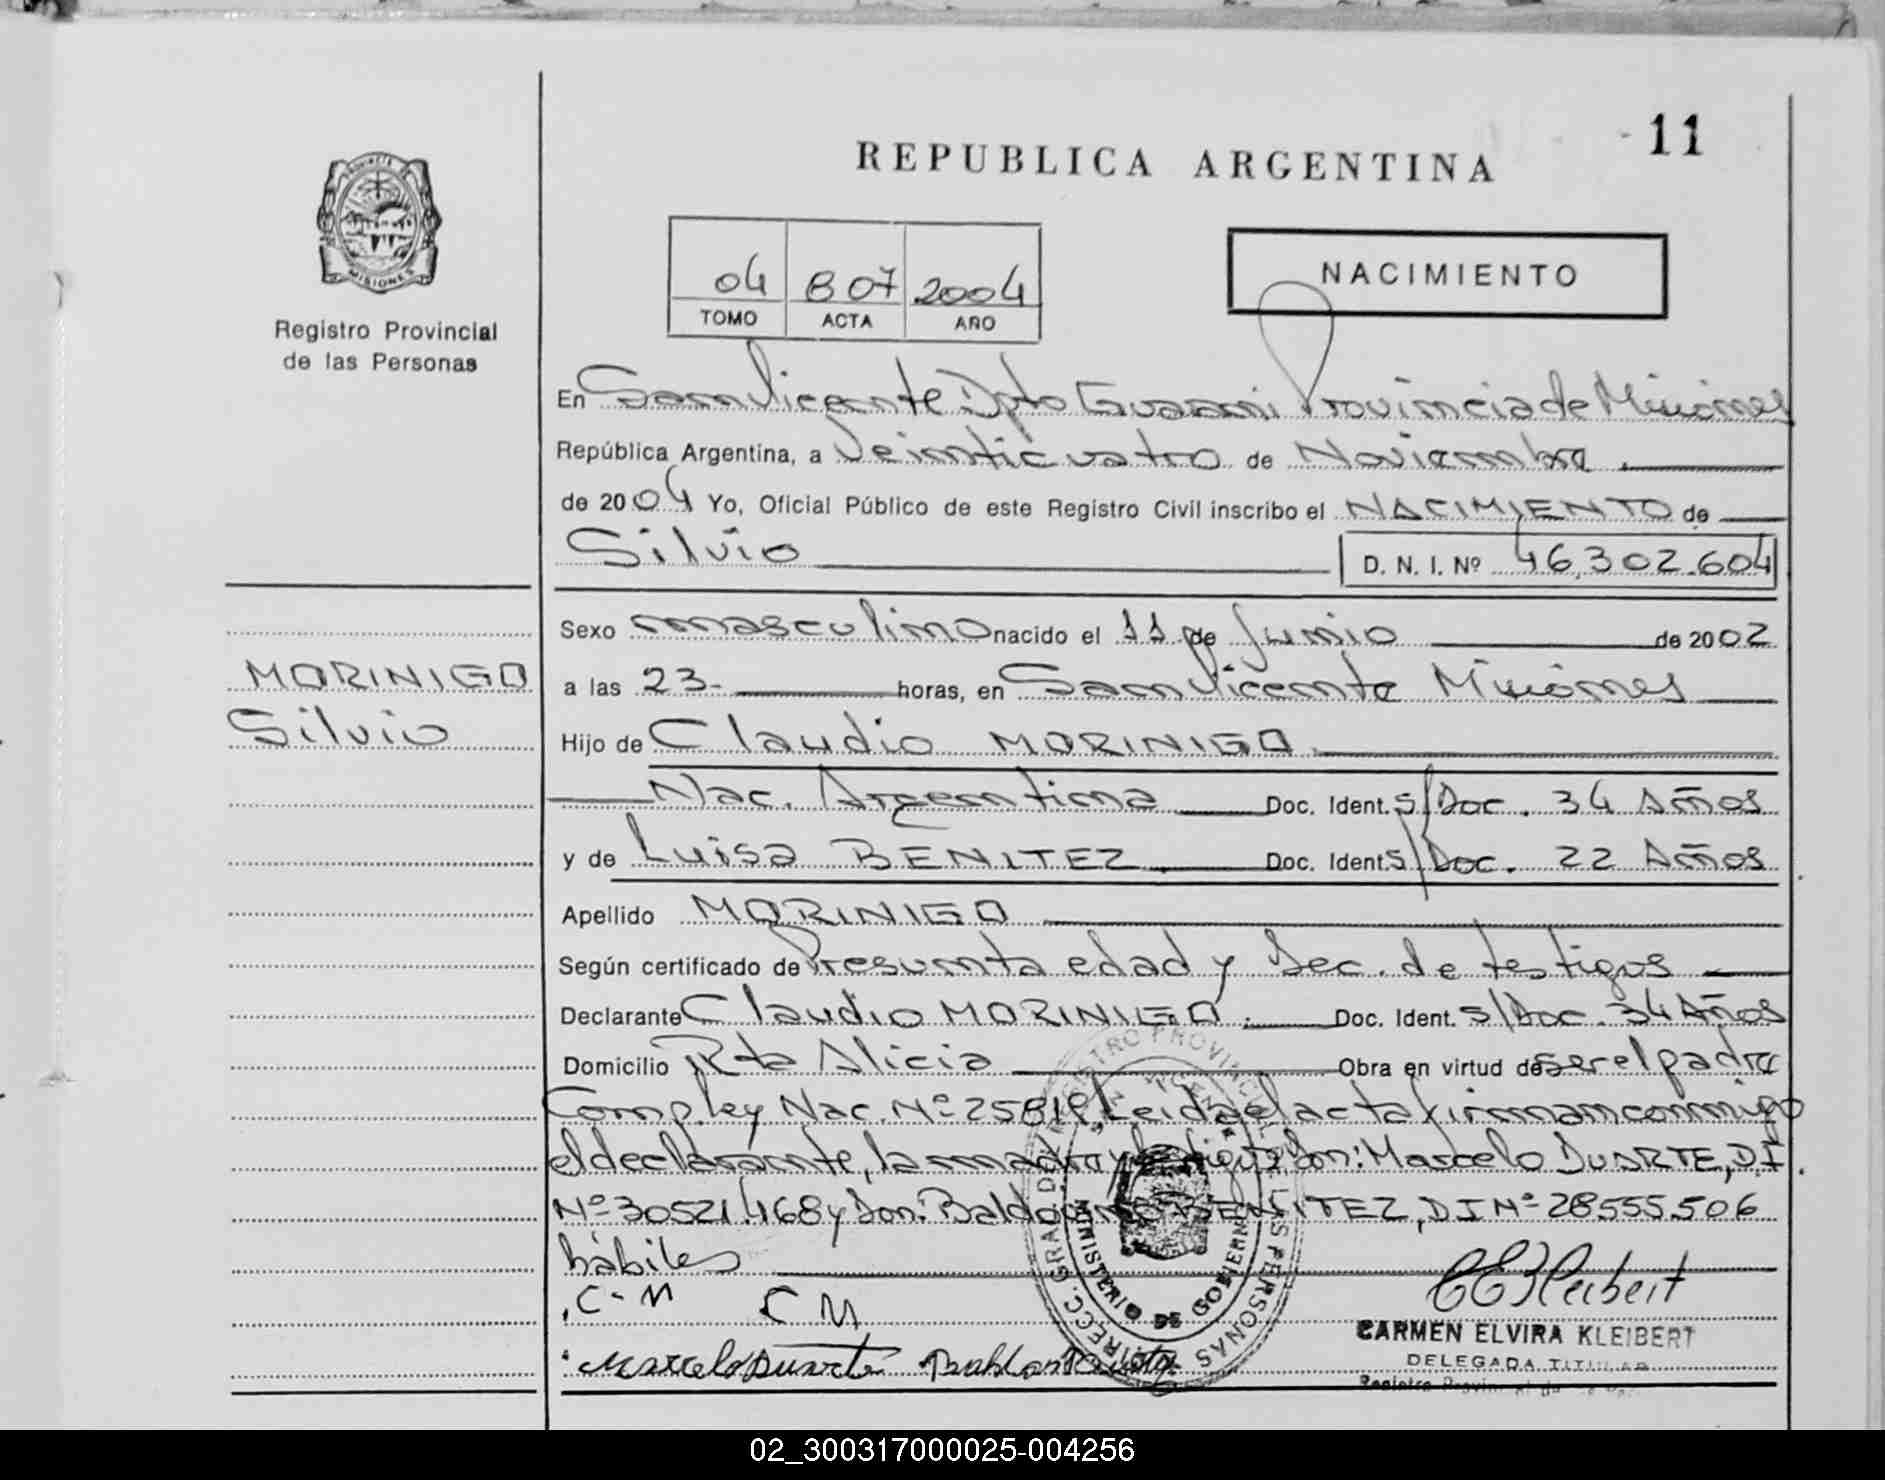 11
REPUBLICA ARGENTINA
PROVINCIA
MISIONES
Registro Provincial
de las Personas
04 807 2004
TOMO ACTA AÑO
NACIMIENTO
En San Vicente Dpto Guarani Provincia de Misiones
República Argentina, a Veinticuatro de Noviembre
de 2004 Yo, Oficial Público de este Registro Civil inscribo el NACIMIENTO de
Silvio D. N. I. Nº 46.302.604
Sexo masculino nacido el 11 de Junio de 2002
MORINIGO
Silvio
a las 23- horas, en San Vicente Misiones
Hijo de Claudio MORINIGO
Nac. Argentina Doc. Ident. S/Doc. 34 Años
y de Luisa BENITEZ Doc. Ident. S/Doc. 22 Años
Apellido MORINIGO
Según certificado de Presunta edad y Dec. de testigos
Declarante Claudio MORINIGO. Doc. Ident. S/Doc. 34 Años
Domicilio Pto Alicia Obra en virtud de ser el padre
Comp. ley Nac. Nº 25819 Leida el acta firman conmigo
el declarante, la madre y testigos Don: Marcelo DUARTE, D.I.
Nº 30521.468 y Don: Baldo BENITEZ, DI Nº 28555.506
hábiles
C-M CM
Marcelo Duarte
CEKleibert
CARMEN ELVIRA KLEIBERT
DELEGADA TITULAR
Registro
DIRECC. GRAL. DEL REGISTRO PROVINCIAL DE LAS PERSONAS
MINISTERIO DE GOBIERNO
02_300317000025-004256